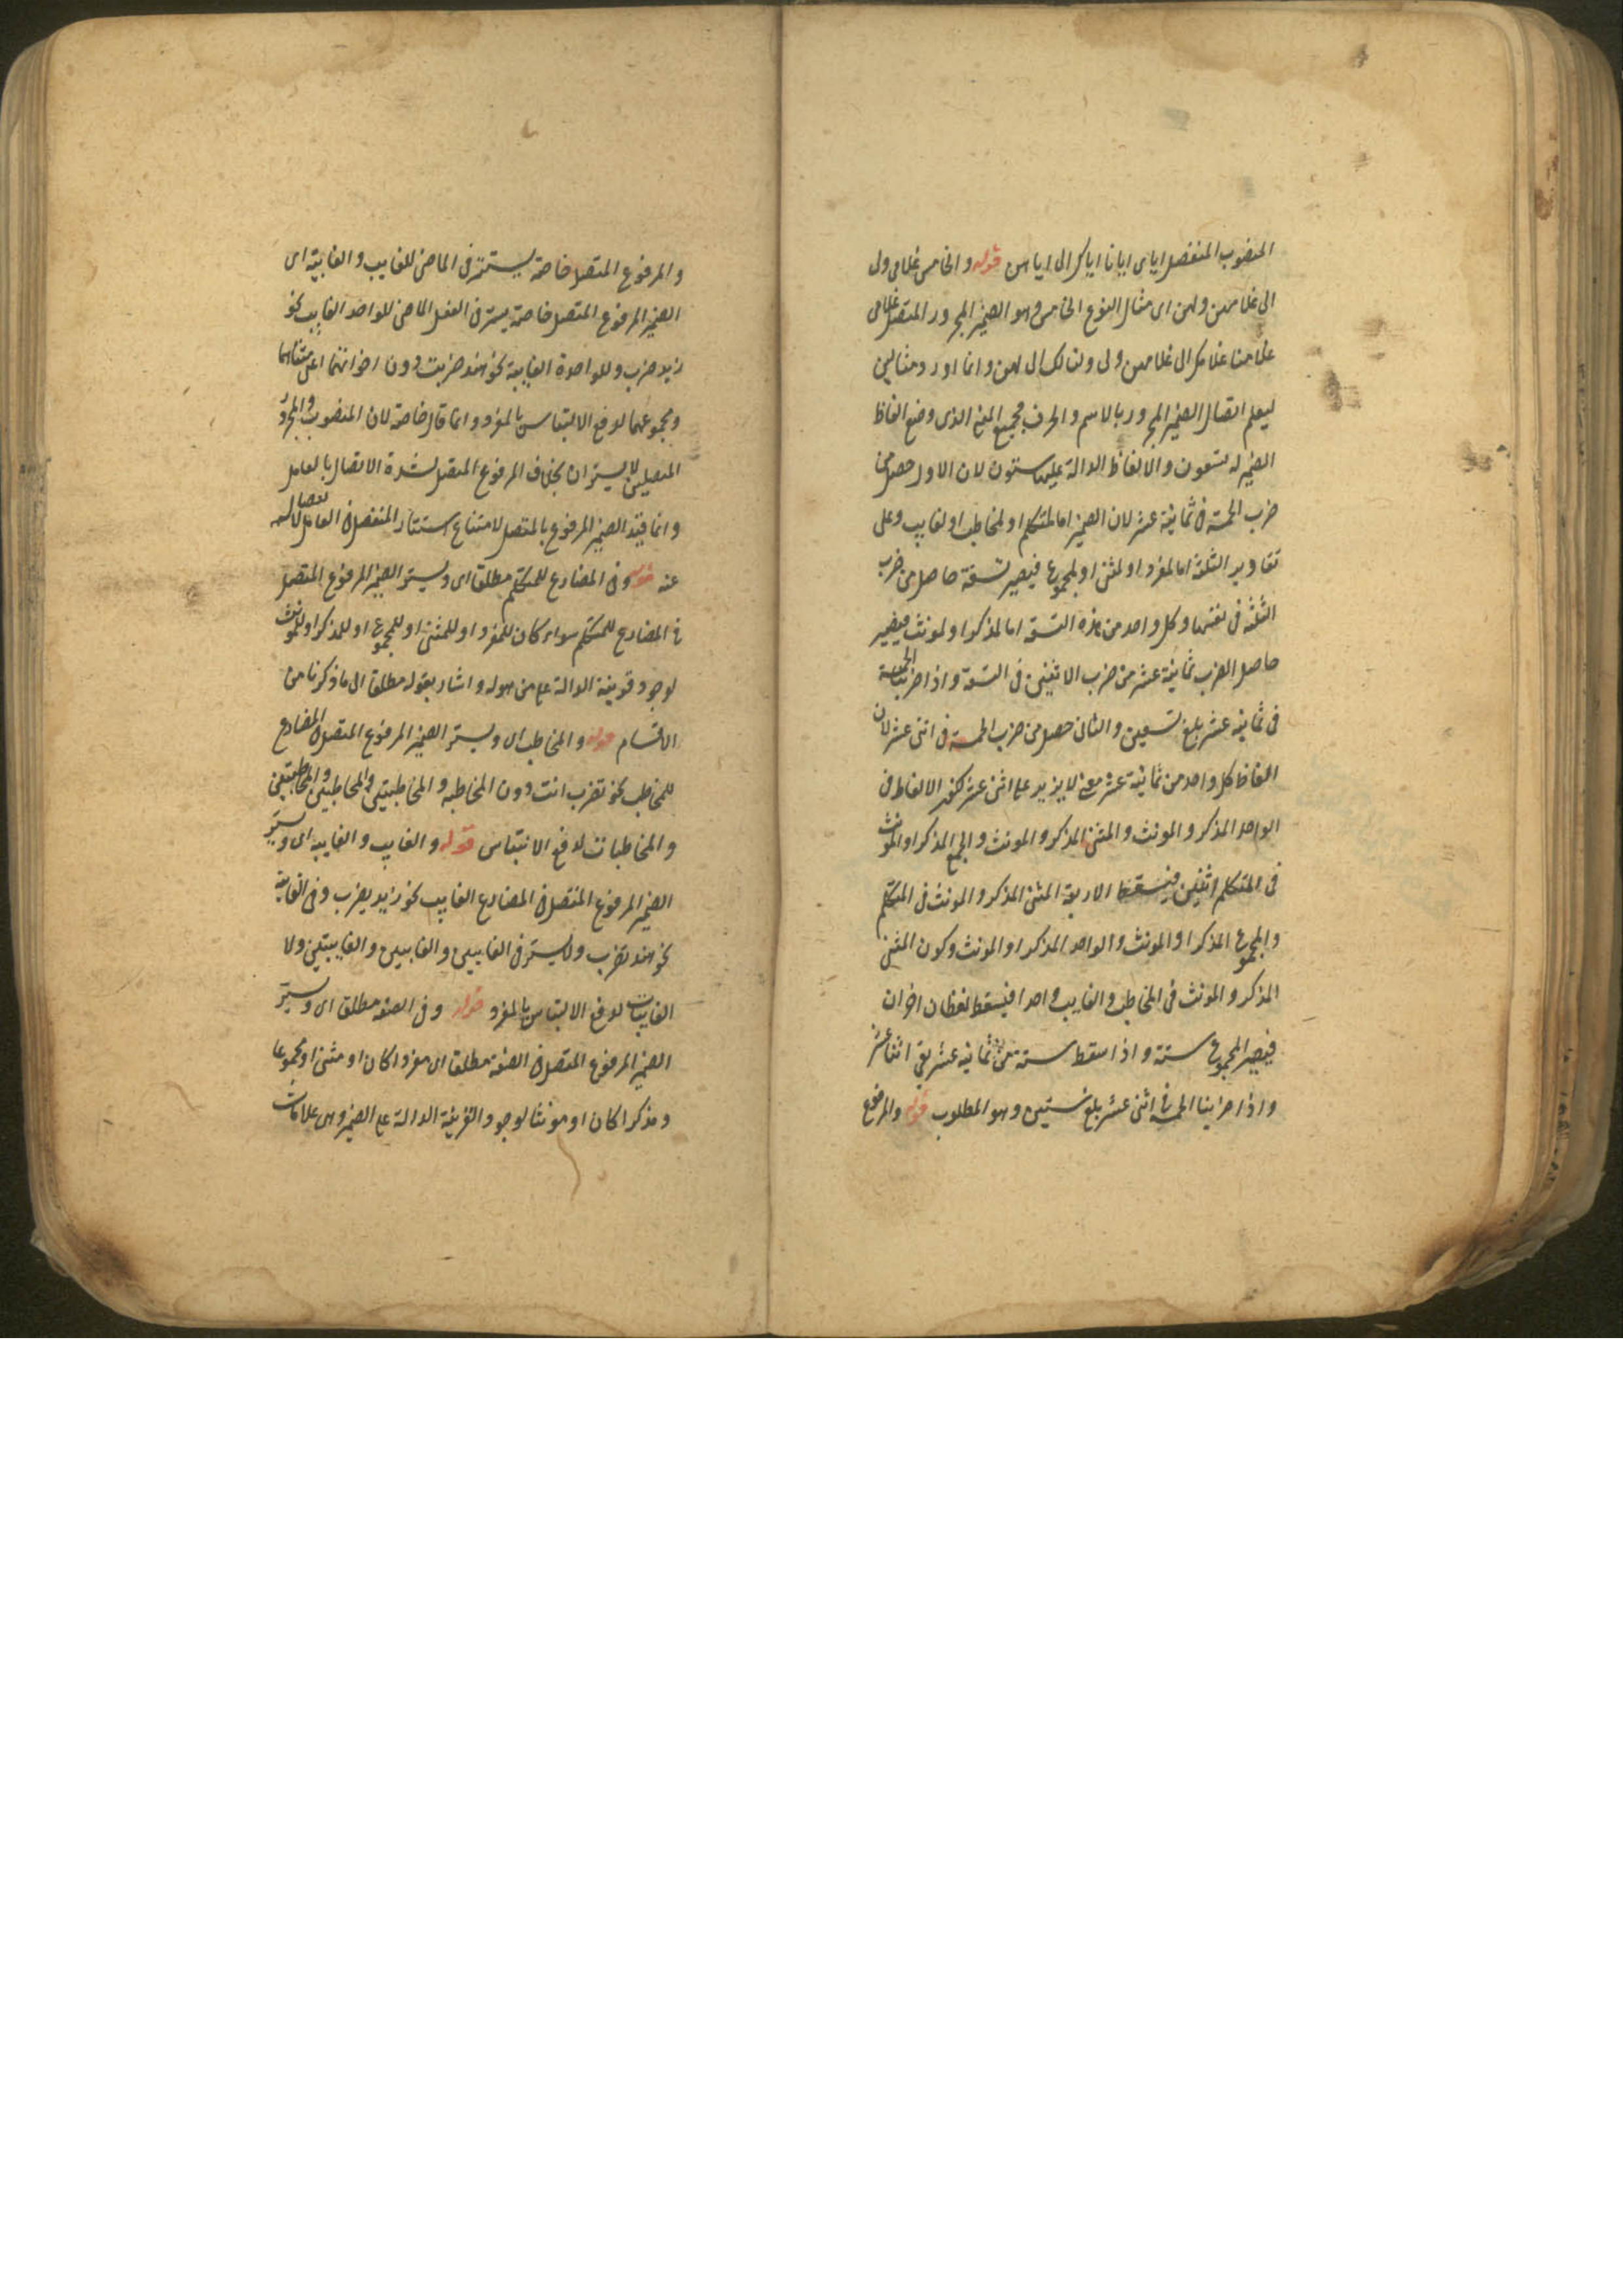 المنصوب المنفصل اياى ايانا اياك الى اياهن قوله والخامس غلامى ولى
الى غلامهن ولهن اى مثال النوع الخامس وهو الضمير المجرور المتصل غلامى
غلامنا غلامك الى غلامهن ولى ولنا لك الى لهن وانما اورد مثالين
ليعلم اتصال الضمير المجرور بالاسم والحرف فجميع المعنى الذى وضع الفاظ
الضمير له تسعون والالفاظ الدالة عليها ستون لان الاول حصل من
ضرب الخمسة فى ثمانية عشر لان الضمير اما لمتكلم او لمخاطب او لغايب وعلى
تقادير الثلثة اما لمفرد او لمثنى او لمجموع فيصير تسعة حاصل من ضرب
الثلثة فى نفسها وكل واحد من هذه التسعة اما لمذكر او لمونث فيصير
حاصل الضرب ثمانية عشر من ضرب الاثنين فى التسعة واذا ضربنا الخمسة
فى ثمانية عشر بلغ تسعين والثانى حصل من ضرب الخمسة فى اثنى عشر لان
الفاظ كل واحد من ثمانية عشر معنى لا يزيد على اثنى عشر لكون الالفاظ فى
الواحد المذكر والمونث والمثنى المذكر والمونث والجمع المذكر او المونث
فى المتكلم اثنين فيسقط الاربعة المثنى المذكر والمونث فى المتكلم
والمجموع المذكر او المونث والواحد المذكر او المونث وكون المثنى
المذكر والمونث فى المخاطب والغايب واحدا فيسقط لفظان اخران
فيصير المجموع ستة واذا اسقط ستة من ثمانية عشر بقى اثنا عشر
واذا ضربنا الخمسة فى اثنى عشر بلغ ستين وهو المطلوب قوله والمرفوع
والمرفوع المتصل خاصة يستتر فى الماضى للغايب والغايبة اى
الضمير المرفوع المتصل خاصة يستتر فى الفعل الماضى للواحد الغايب نحو
زيد ضرب وللواحدة الغايبة نحو هند ضربت دون اخواتهما اعنى مثناهما
ومجموعهما لدفع الالتباس بالمفرد وانما قال خاصة لان المنصوب والمجرور
المتصلين لا يستتران بخلاف المرفوع المتصل لشدة الاتصال بالعامل
وانما قيد الضمير المرفوع بالمتصل لامتناع استتار المنفصل فى العامل لانفصاله
عنه قوله وفى المضارع للمتكلم مطلقا اى ويستتر الضمير المرفوع المتصل
فى المضارع للمتكلم سواء كان للمفرد او للمثنى او للمجموع او للمذكر او للمونث
لوجود قرينة الدالة على من هو له واشار بقوله مطلقا الى ما ذكرنا من
الاقسام قوله والمخاطب اى ويستتر الضمير المرفوع المتصل فى المضارع
للمخاطب نحو تضرب انت دون المخاطبه والمخاطبين والمخاطبين والمخاطبتين
والمخاطبات لدفع الالتباس قوله والغايب والغايبه اى ويستتر
الضمير المرفوع المتصل فى المضارع الغايب نحو زيد يضرب وفى الغايبة
نحو هند تضرب ولا يستتر فى الغايبين والغايبين والغايبتين ولا
الغايبات لدفع الالتباس بالمفرد قوله وفى الصفه مطلقا اى ويستتر
الضمير المرفوع المتصل فى الصفة مطلقا اى مفردا كان او مثنى او مجموعا
ومذكرا كان او مونثا لوجود القرينة الدالة على الضمير وهى علامات